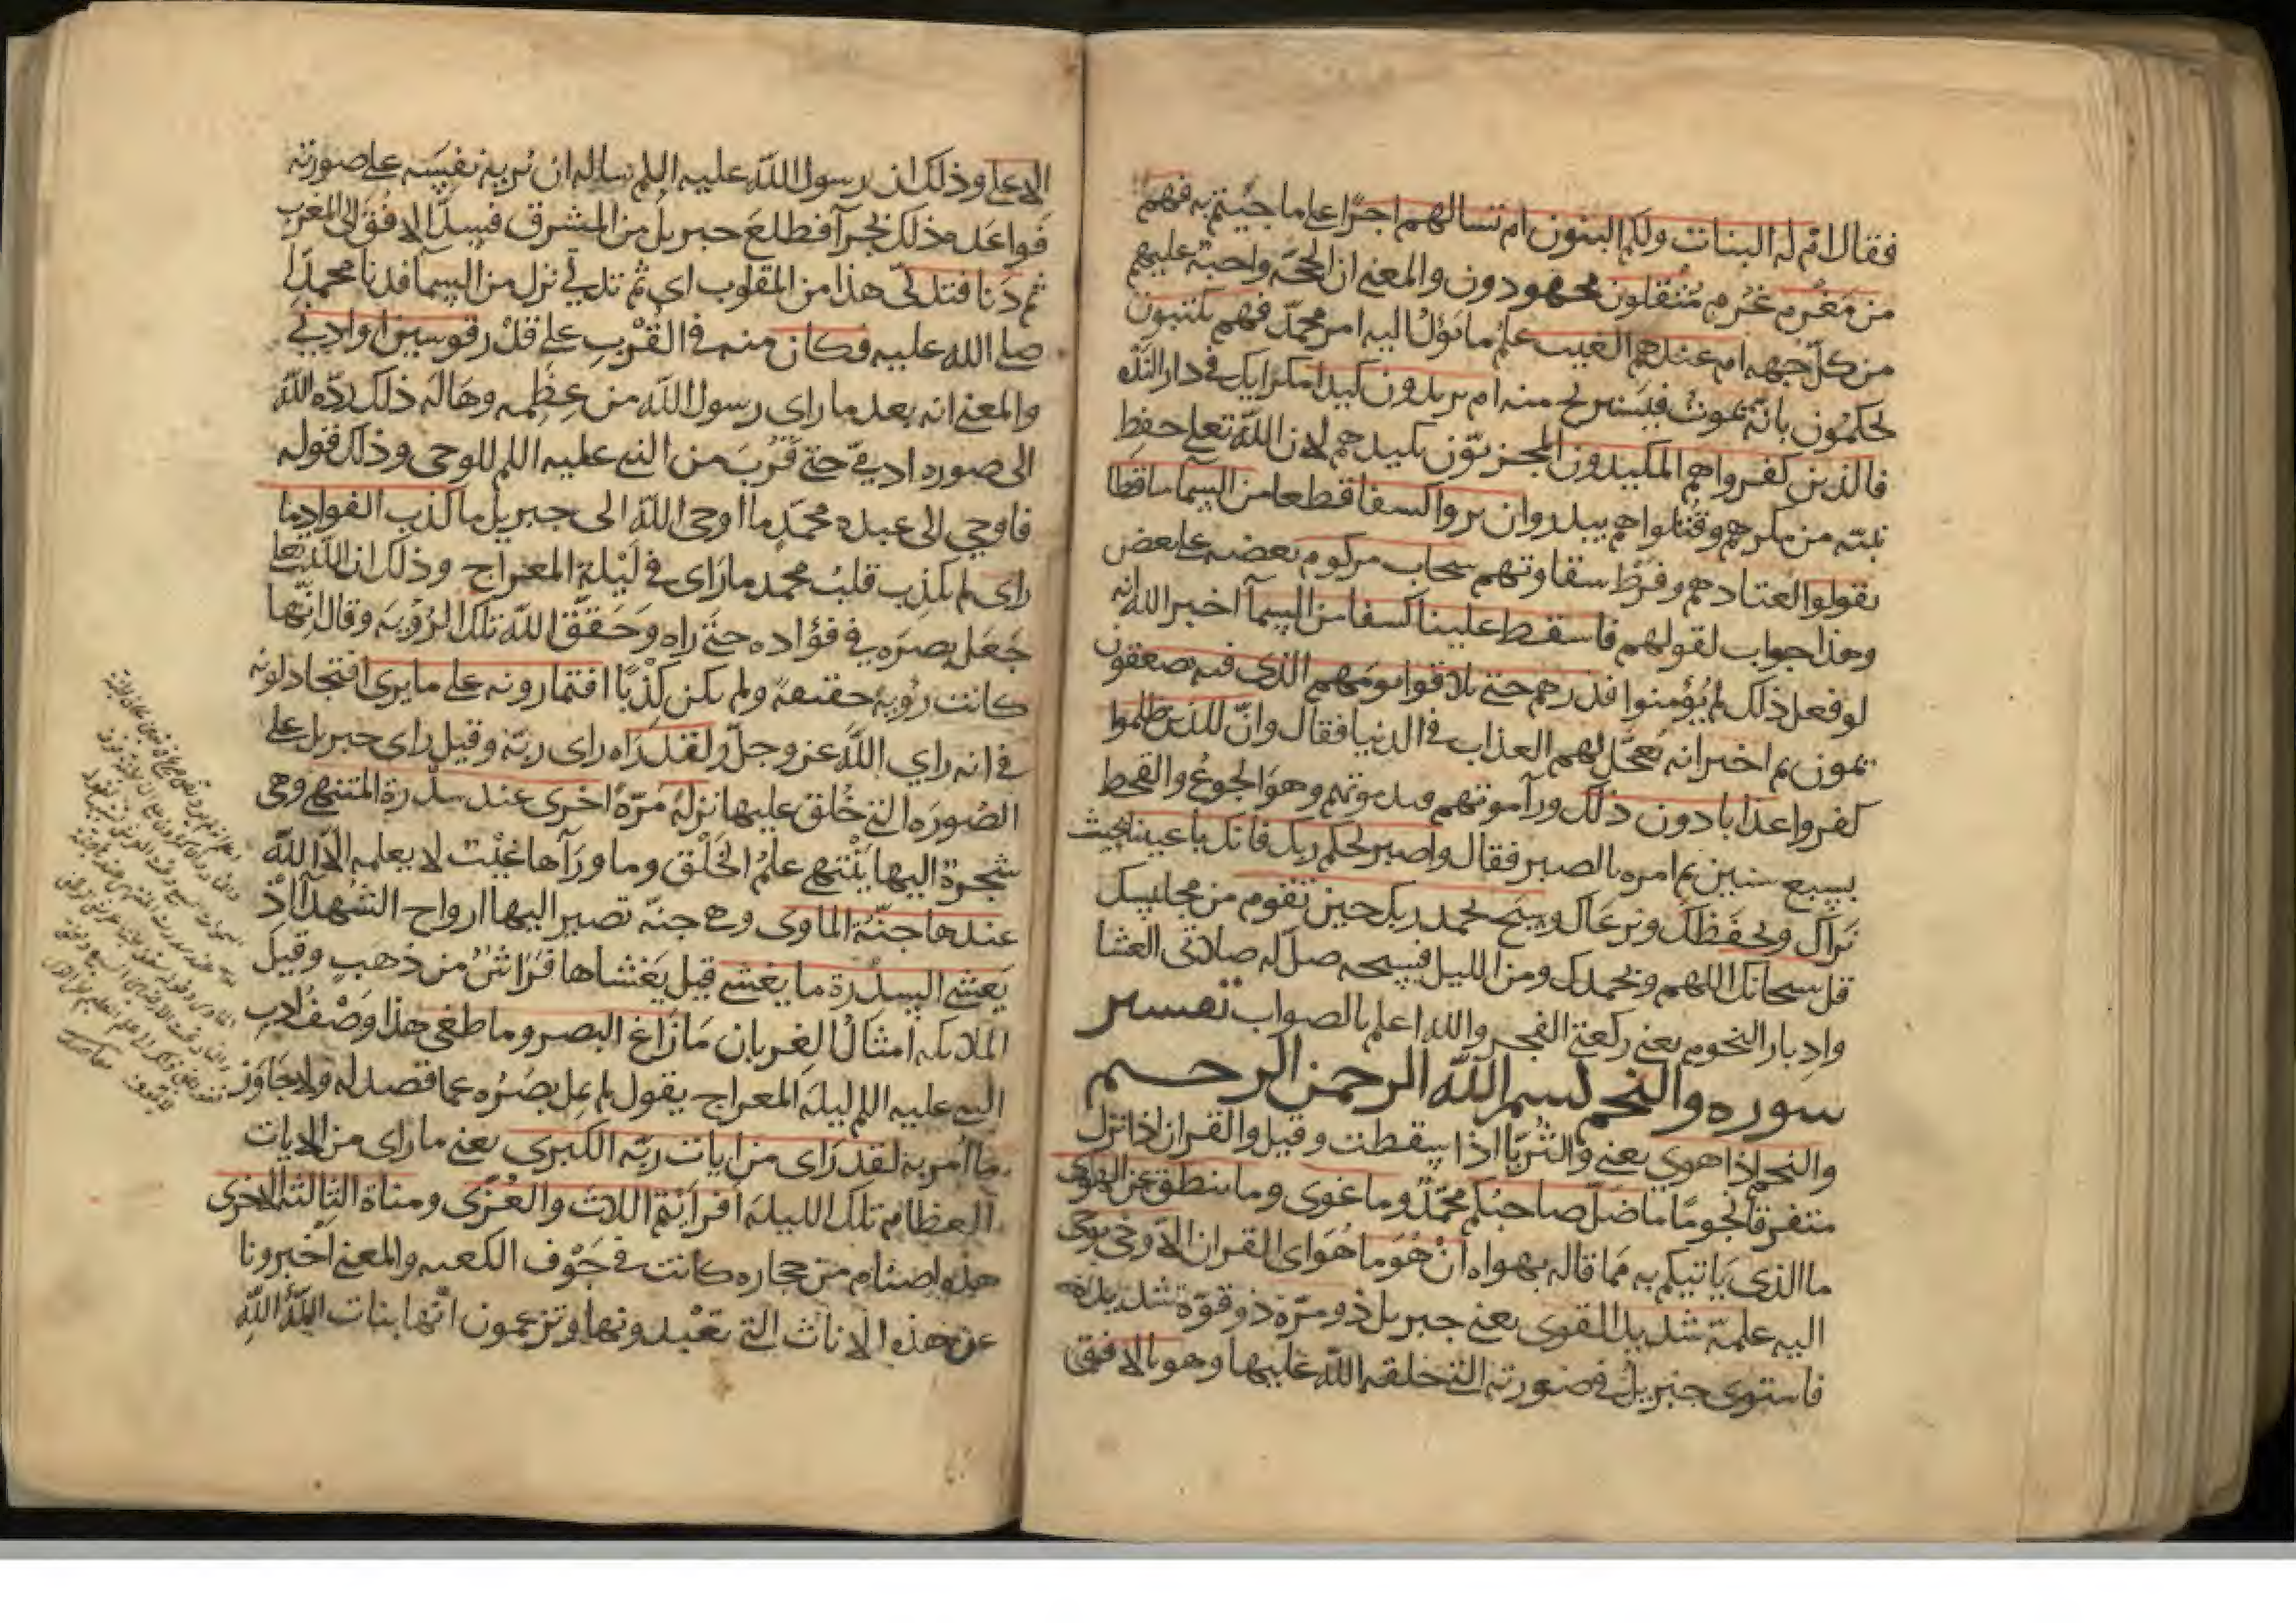 فقال ام له البنات ولكم البنون ام تسالهم اجرًا على ما جيتم به فهم
من مغرم غرم مثقلون مجهودون والمعنى ان الحجة واجبة عليهم
من كل جهه ام عندهم الغيب علم ما يؤل اليه امر محمد فهم يكتبون
يحكمون بانه يموت فيستريح منه ام يريدون كيدا مكرا بك في دار الندوه
فالذين كفروا هم المكيدون المجزيون بكيدهم لان الله تعلى حفظ
نبيه من مكرهم وقتلوا هم ببدر وان يروا كسفا قطعا من السما ساقطا
يقولوا لعنادهم وفرط شقاوتهم سحاب مركوم بعضه على بعض
وهذا جواب لقولهم فاسقط علينا كسفا من السمآ اخبر الله انه
لو فعل ذلك لم يؤمنوا فذرهم حتى يلاقوا يومهم الذي فيه يصعقون
يموتون ثم اخبر انه يعجل لهم العذاب في الدنيا فقال وان للذين ظلموا
كفروا عذابا دون ذلك ورآ موتهم قبل موتهم وهو الجوع والقحط
بسبع سنين ثم امره بالصبر فقال واصبر لحكم ربك فانك باعيننا بحيث
نراك ونحفظك ونرعاك وسبح بحمد ربك حين تقوم من مجلسك
قل سبحانك اللهم وبحمدك ومن الليل فسبحه صل له صلاتى العشا
وادبار النجوم يعنى ركعتى الفجر والله اعلم بالصواب تفسير
سوره والنجم بسم الله الرحمن الرحيم
والنجم اذا هوى يعنى والثريا اذا سقطت وقيل والقران اذا نزل
متفرقا نجومًا ما ضل صاحبكم محمد وما غوى وما ينطق عن الهوى
ما الذى ياتيكم به مما قاله بهواه ان هو ما هو اى القران الا وحى يوحى
اليه علمه شديد القوى يعنى جبريل ذو مرة ذو قوة شديدة
فاستوى جبريل في صورته التى خلقه الله عليها وهو بالافق
الاعلى وذلك ان رسول الله عليه السلم ساله ان يريه نفسه على صورته
فواعده ذلك بحرآ فطلع جبريل من المشرق فسد الافق الى المغرب
ثم دنا فتدلى هذا من المقلوب اى ثم تدلى نزل من السما فدنا محمدا
صلى الله عليه فكان منه في القرب على قدر قوسين او ادنى
والمعنى انه بعد ما راى رسول الله من عظمه وهاله ذلك رده الله
الى صوره ادمى حتى قرب من النبى عليه السلم للوحى وذلك قوله
فاوحى الى عبده محمد ما اوحى الله الى جبريل ما كذب الفواد ما
راى لم يكذب قلب محمد ما راى في ليلة المعراج وذلك ان الله تعلى
جعل بصره في فؤاده حتى راه وحقق الله تلك الرؤيه وقال انها
كانت رؤيه حقيقه ولم يكن كذبًا افتمارونه على ما يرى افتجادلونه
في انه راي الله عز وجل ولقد راه راى ربه وقيل راى جبريل على
الصوره التى خلق عليها نزلة مرة اخرى عند سدرة المنتهى وهى
شجرة اليها ينتهى علم الخلق وما ورآها غيب لا يعلمه الا الله
عندها جنة الماوى وهى جنة تصير اليها ارواح الشهدآ اذ
يغشى السدرة ما يغشى قيل يغشاها فراش من ذهب وقيل
الملايكه امثال الغربان ما زاغ البصر وما طغى هذا وصف ادب
النبى عليه السلم ليلة المعراج يقول لم يمل بصره عما قصد له ولا جاوز
ما امر به لقد راى من ايات ربه الكبرى يعنى ما راى من الايات
العظام تلك الليله افرايتم اللات والعزى ومناة الثالثة الاخرى
هذه اصنام من حجاره كانت في جوف الكعبه والمعنى اخبرونا
عن هذه الاناث التى تعبدونها وتزعمون انها بنات الله الله